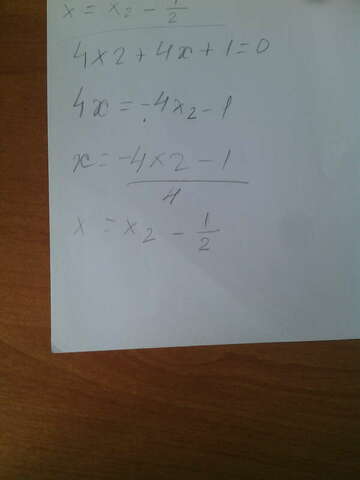 x = x₂ - 1/2
4x2 + 4x + 1 = 0
4x = -4x₂ - 1
x = -4x2 - 1
4
x = x₂ - 1/2